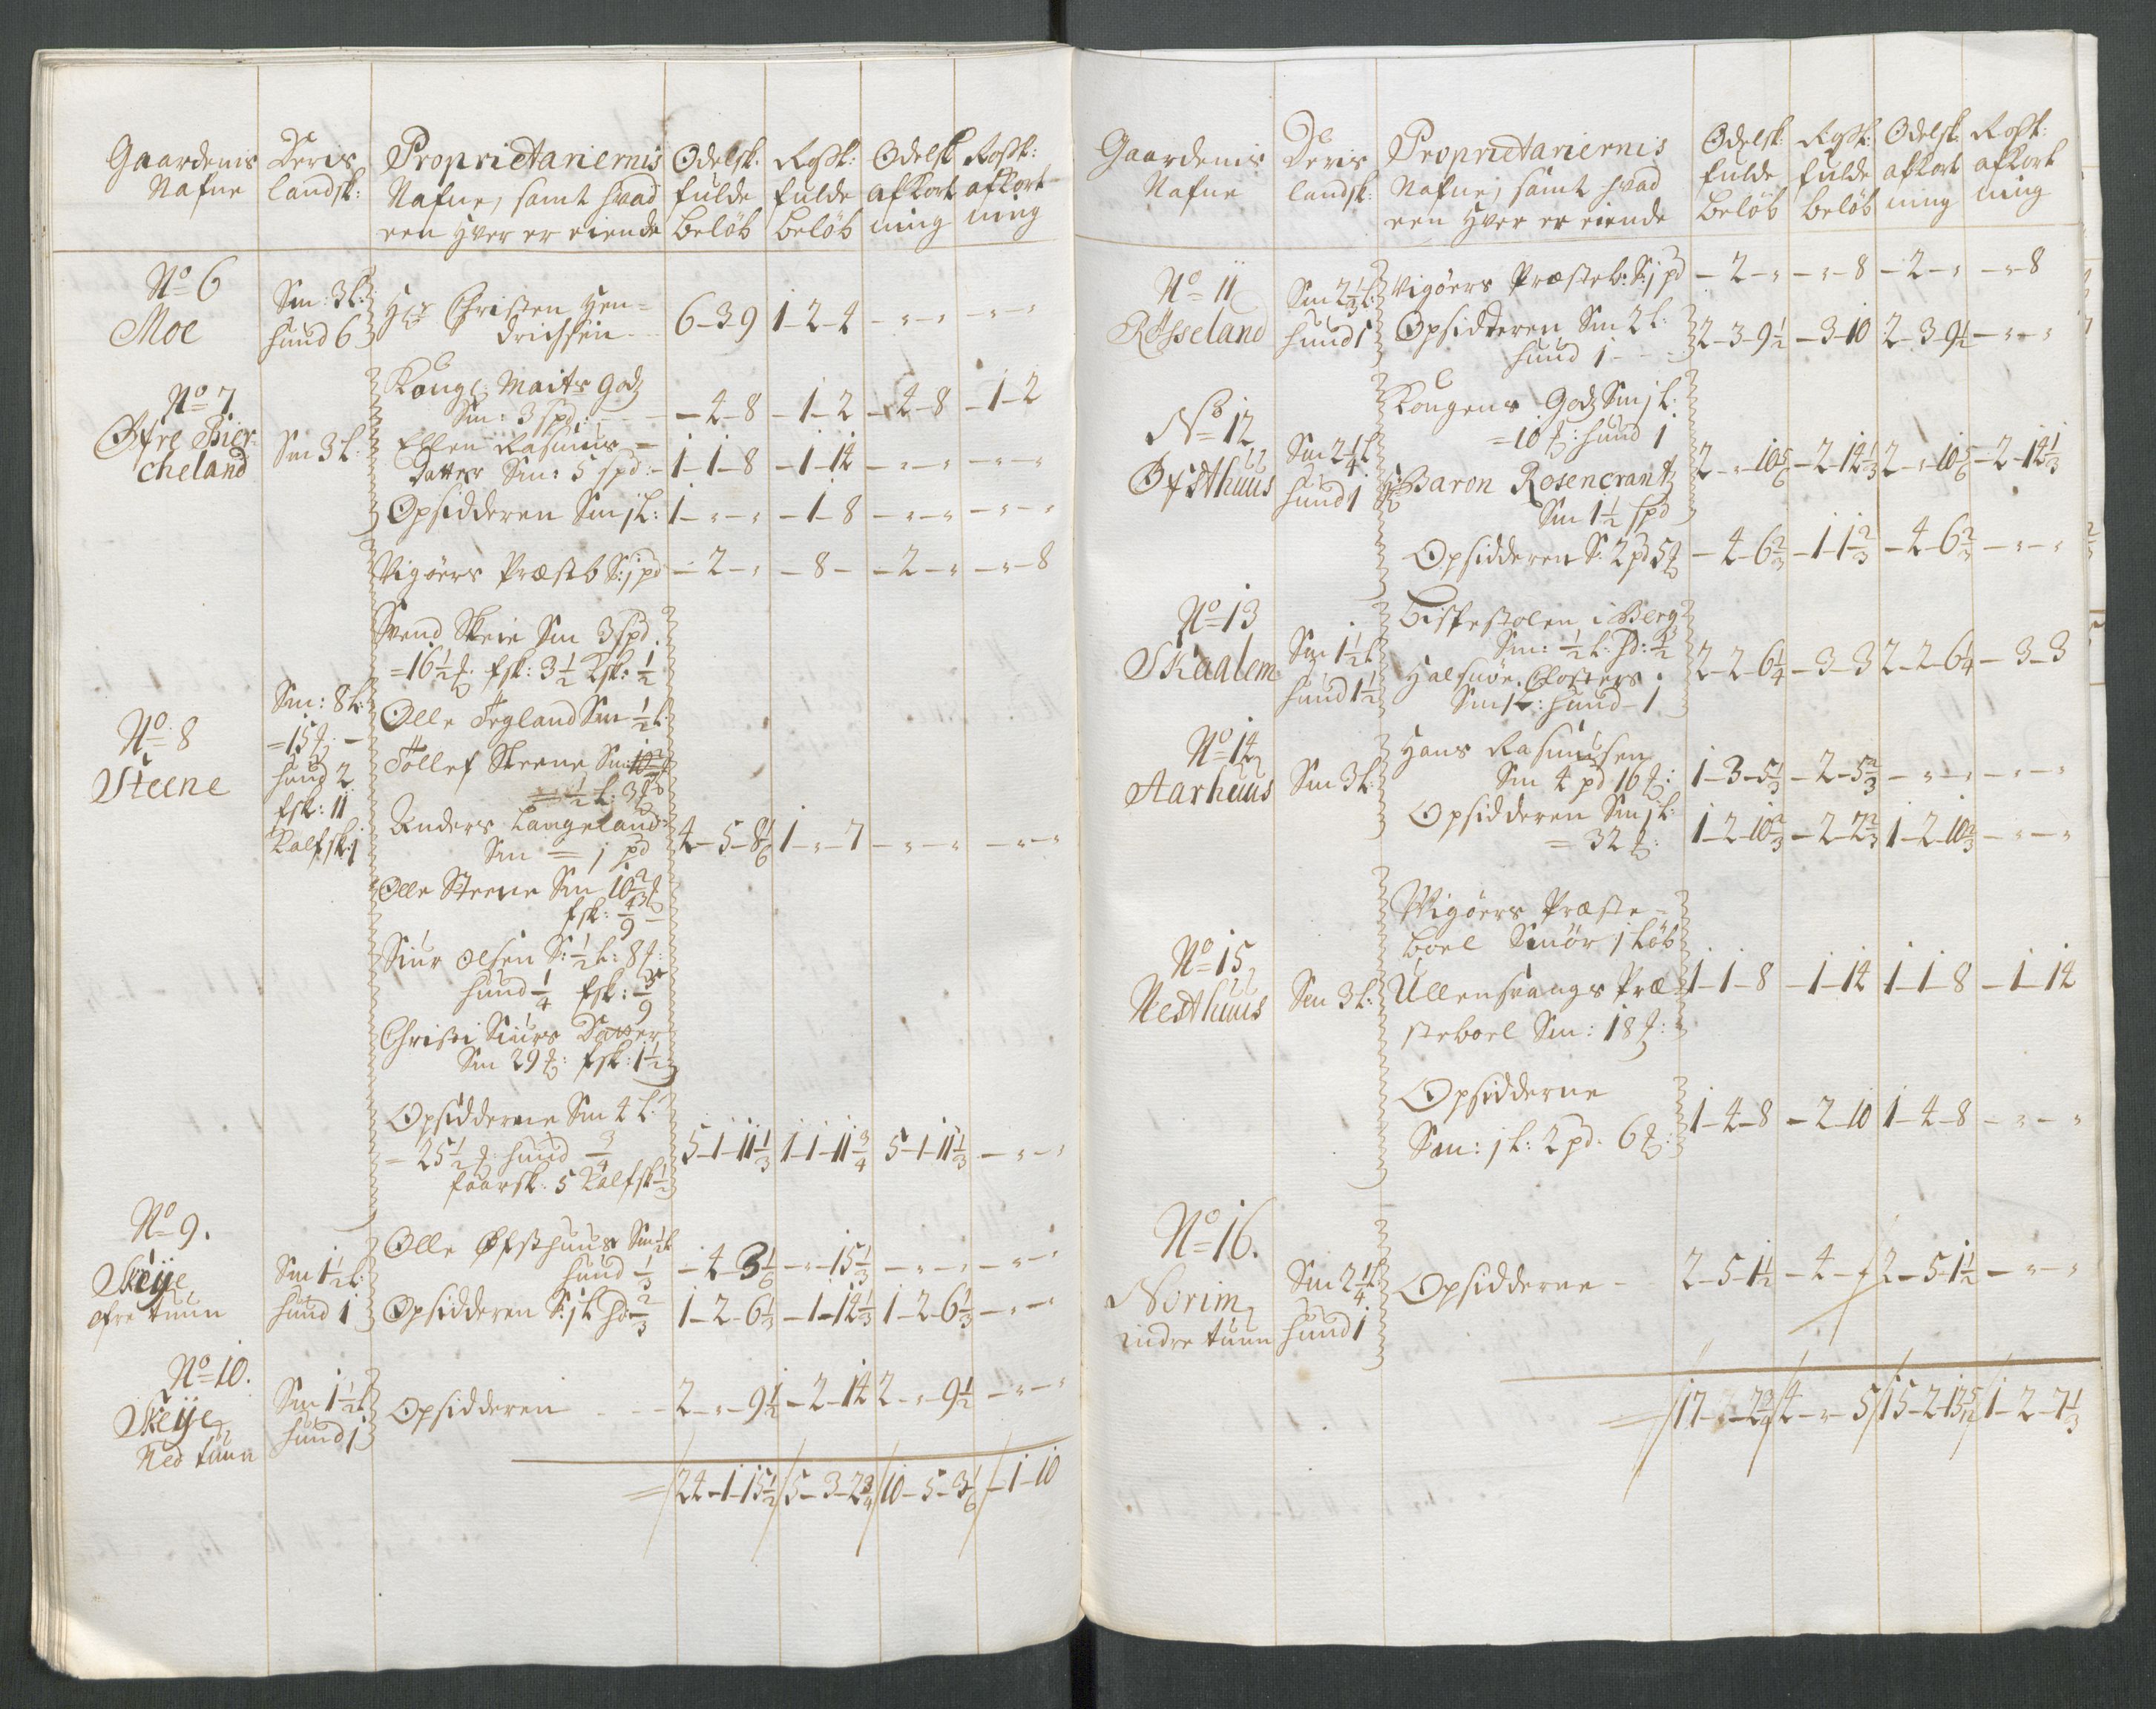 Gaardenis Nafne
Deris landsk:
Proprietariernis Nafne, samt hvad een hver er eiende
Odelsk: fulde beløb
Roßk: fulde beløb
Odelsk afkortning
Roßk: afkortning
No 6 Moe
Sm: 3 L: hund 6
Hr Christen Hendrichsen
6-3-9 1-2-4 - " - " - " - "
No 7 Øfre Biercheland
Sm 3 L:
Kongl: Maits godz
Sm: 3 spd: - 4-8 - 1-2 - 4-8 - 1-2
Ellen Rasmus-
datter Sm: 5 spd: - 1-1-8 - 1-14 - " - " - " - "
Opsidderen Sm j L: 1 - " - " - 1-8 - " - " - " - "
Vigöers Præsteb S: j pd - 2 - " - 8 - - 2 - " - " - 8
No 8 Steene
Sm: 8 L:
= 15 ℔ -
hund 2
fsk: 11
Kalfsk: j
Svend Skeie Sm 3 spd.
= 16 1/2 ℔. fsk: 3 1/2 Ksk: 1/2
Olle Tegland Sm 1/2 L:
Tollef Steene Sm:
= 1/2 L: 3 ℔
Anders Langeland
Sm = j pd 4-5-8 1/6 1 - " - 7 - " - " - " - "
Olle Steene Sm 10 2/3 ℔
fsk: 4/9 -
Siur Olsen S: 1/2 L: 8 ℔:
hund 1/4 fsk: 5/9
Christi Siurs Datter
Sm 29 ℔: fsk: 1 1/2
Opsidderne Sm 4 L:
= 25 1/2 ℔: hund 3/4
faarsk: 5 Kalfsk 1/2
5-1-11 1/3 1-1-11 3/4 5-1-11 1/3 - " - "
No 9. Skeije øfre tuun
Sm 1 1/2 L: hund 1
Olle Øfsthuus Sm 1/2 L
hund 1/3 - 4-3 1/6 - " - 15 1/3 - " - " - " - "
Opsidderen S: j L hd: 2/3 1-2-6 1/3 - 1-14 1/3 1-2-6 1/3 - " - "
No 10. Skeije Ned tuun
Sm 1 1/2 L hund j
Opsidderen - 2 - " - 9 1/2 - 2-14 2 - " - 9 1/2 - " - "
= / 24-1-15 1/2 / 5-3-2 3/4 / 10-5-3 1/6 / - 1-10
Gaardenis Nafne
Deris landsk:
Proprietariernis Nafne, samt hvad een hver er eiende
Odelsk: fulde beløb
Roßk: fulde beløb
Odelsk: afkortning
Roßk: afkortning
No 11 Røsseland
Sm 2 1/3 L: hund 1
Vigöers Præsteb: S: j pd - 2 - " - " - 8 - 2 - " - " - 8
Opsidderen Sm 2 L:
hund 1 - 2-3-9 1/2 - 3-10 2-3-9 1/2 - " - "
No 12 Øfsthuus
Sm 2 1/4 L hund 1
Kongens Godz Sm j L:
= 10 ℔: hund 1
Hr Baron Rosencrantz
Sm 1 1/2 spd
2 - " - 10 5/6 - 2-14 1/3 2 - " - 10 5/6 - 2-14 1/3
Opsidderen S: 2 pd 5 ℔ - 4-6 2/3 - 1-1 2/3 - 4-6 2/3 - " - "
No 13 Skaalem
Sm 1 1/2 L hund 1 1/2
Bispestolen i Berg
Sm: 1/2 L: hd: 1/2
Halsnöe Closters
Sm 1 L: hund - 1
2-2-6 1/4 - 3-3 2-2-6 1/4 - 3-3
No 14 Aarhuus
Sm 3 L:
Hans Rasmusen
Sm 4 pd 16 ℔: 1-3-5 1/3 - 2-5 2/3 - " - " - " - "
Opsidderen Sm j L:
= 32 ℔: 1-2-10 2/3 - 2-2 2/3 1-2-10 2/3 - " - "
No 15 Nesthuus
Sm 3 L:
Wigöers Præste-
boel Smör j Löb
Ullensvangs Præ-
steboel Sm: 18 ℔:
1-1-8 - 1-14 1-1-8 - 1-14
Opsidderne
Sm: j L: 2 pd. 6 ℔: 1-4-8 - 2-10 1-4-8 - " - "
No 16. Norim indre tuun
Sm 2 1/4 L hund 1
Opsidderne - 2-5-1 1/2 - 4 - " 2-5-1 1/2 - " - "
= / 17 - " - 2 3/4 / 4 - " - 5 / 15-2-13 5/12 / 1-2-7 1/3